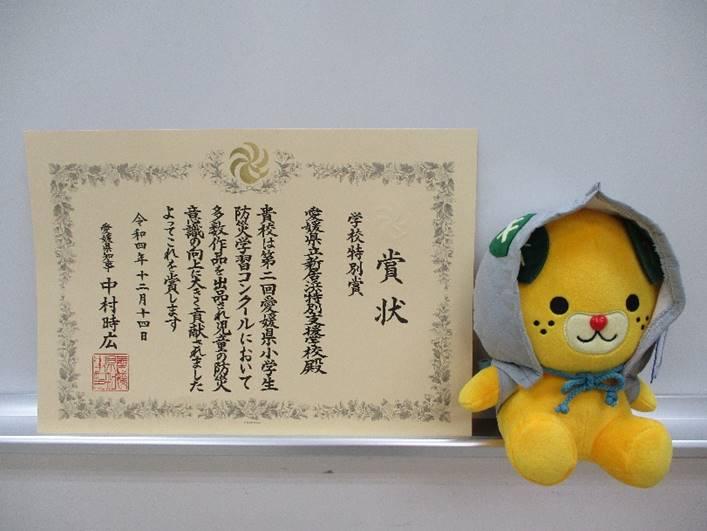 賞状
学校特別賞
愛媛県立新居浜特別支援学校殿
貴校は第二回愛媛県小学生
防災学習コンクールにおいて
多数作品を出品され児童の防災
意識の向上に大きく貢献されました
よってこれを賞します
令和四年十二月十四日
愛媛県知事 中村時広